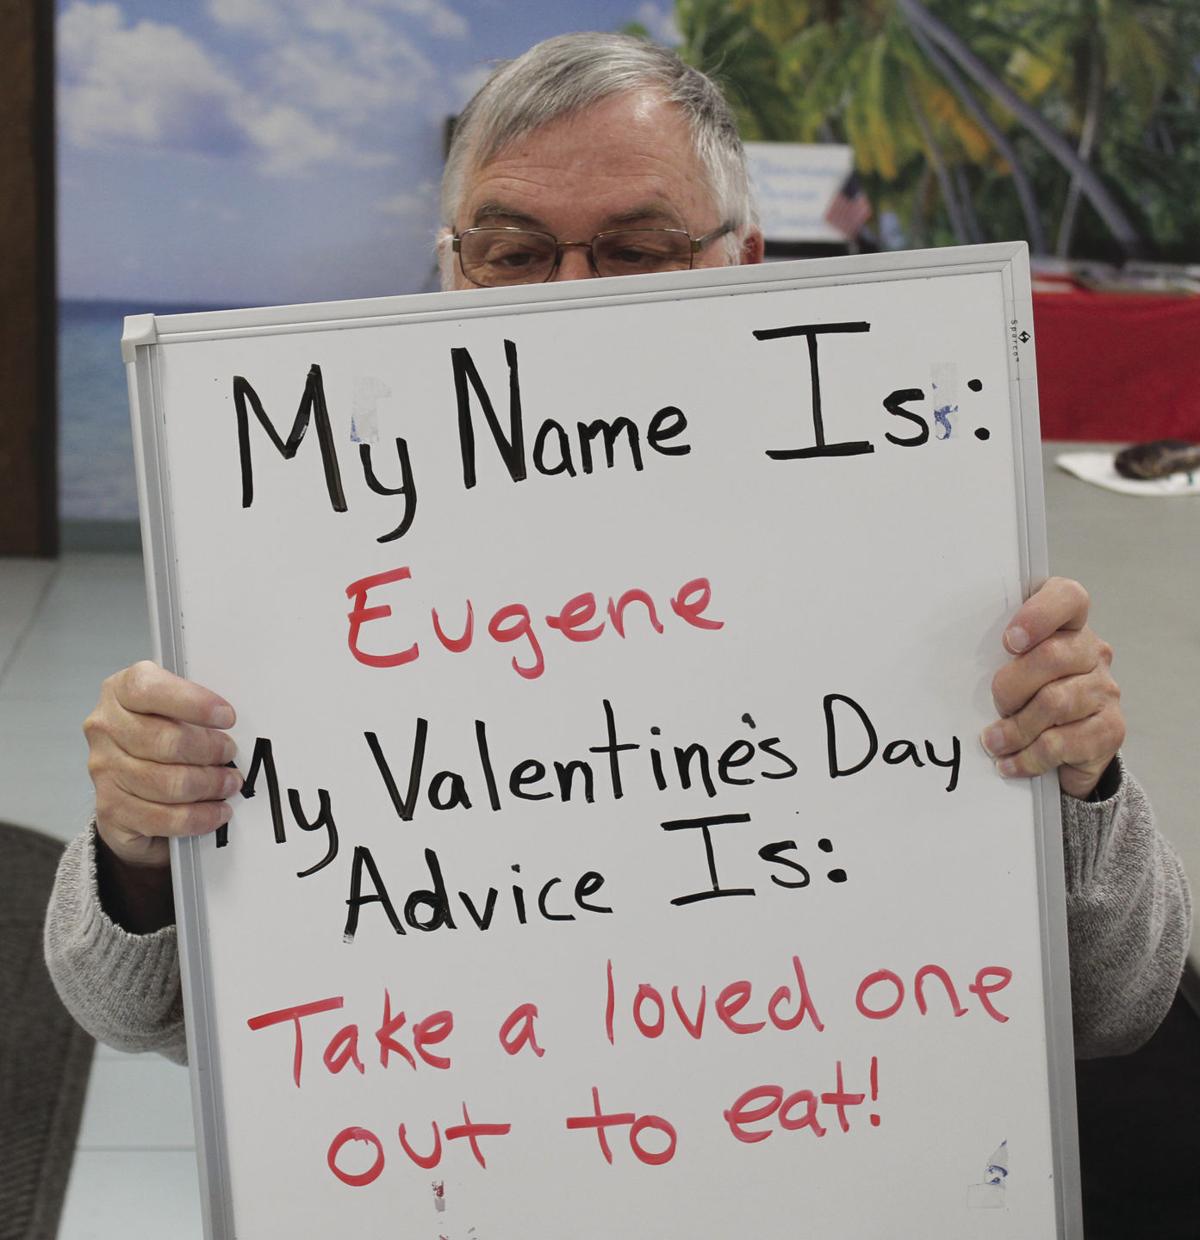 My Name Is:
Eugene
My Valentine's Day
Advice Is:
Take a loved one
out to eat!
Sparco